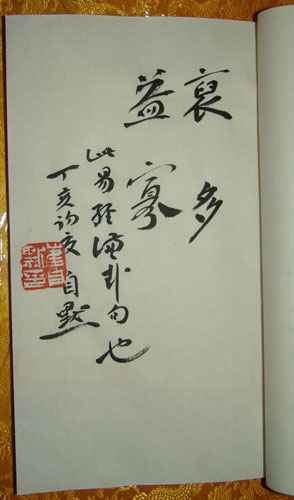 裒多
益寡
此易经谦卦句也
丁亥初夏自默